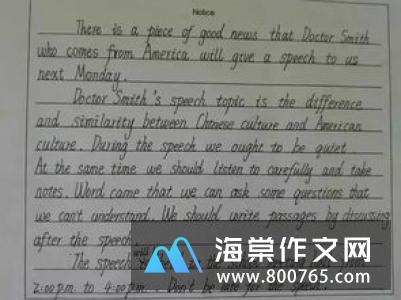 Notice
There is a piece of good news that Doctor Smith
who comes from America will give a speech to us
next Monday.
Doctor Smith's speech topic is the difference
and similarity between Chinese culture and American
culture. During the speech we ought to be quiet
At the same time we should listen to carefully and take
notes. Word came that we can ask some questions that
we can't understand. We should write passages by discussing
after the speech.
The speech will
2:00 p.m. to 4:00 p.m.. Don't be late for the speech.
海棠作文网
www.800765.com